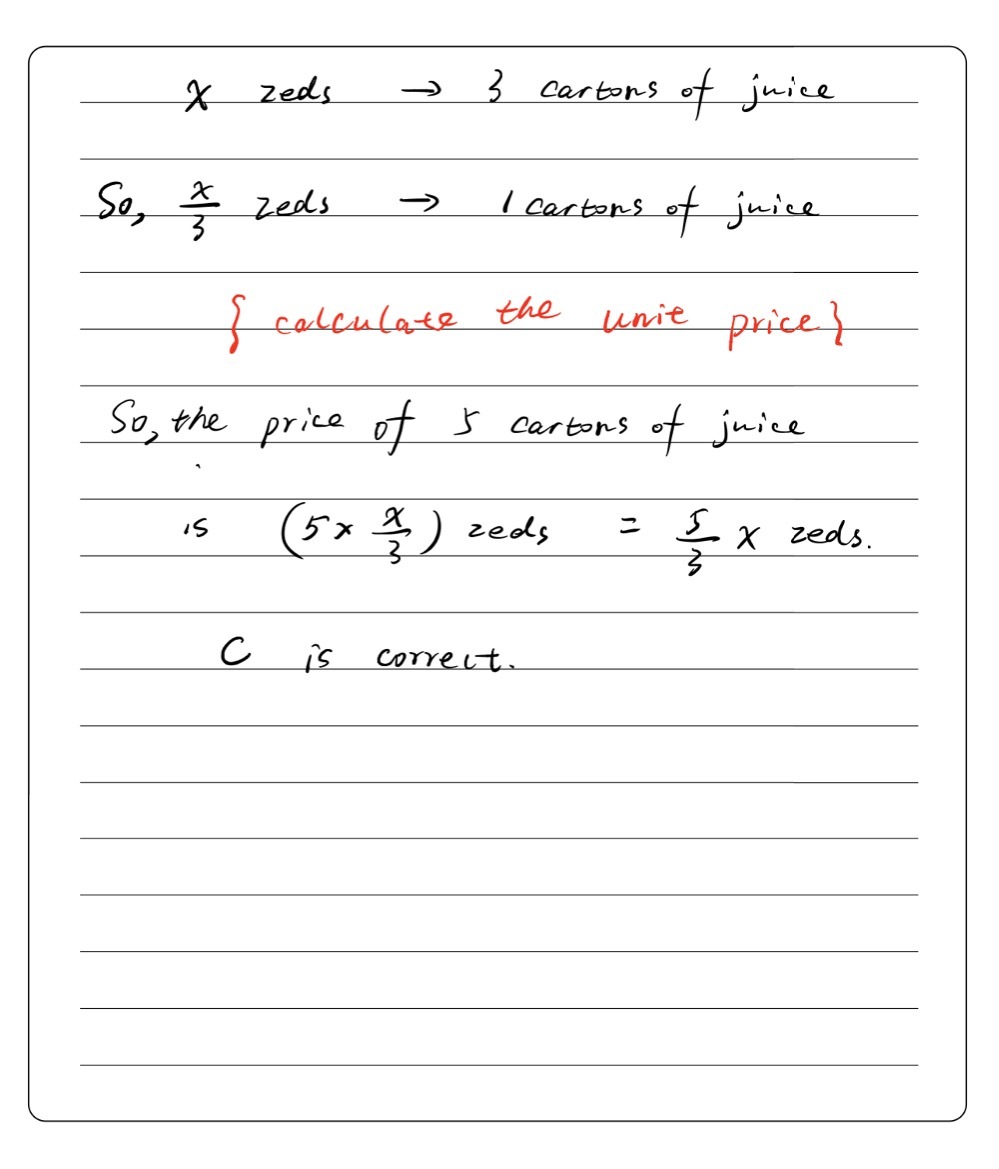 x zeds → 3 cartons of juice
So, x/3 zeds → 1 cartons of juice
{ calculate the unit price}
So, the price of 5 cartons of juice
is (5 × x/3) zeds = 5/3 x zeds.
C is correct.